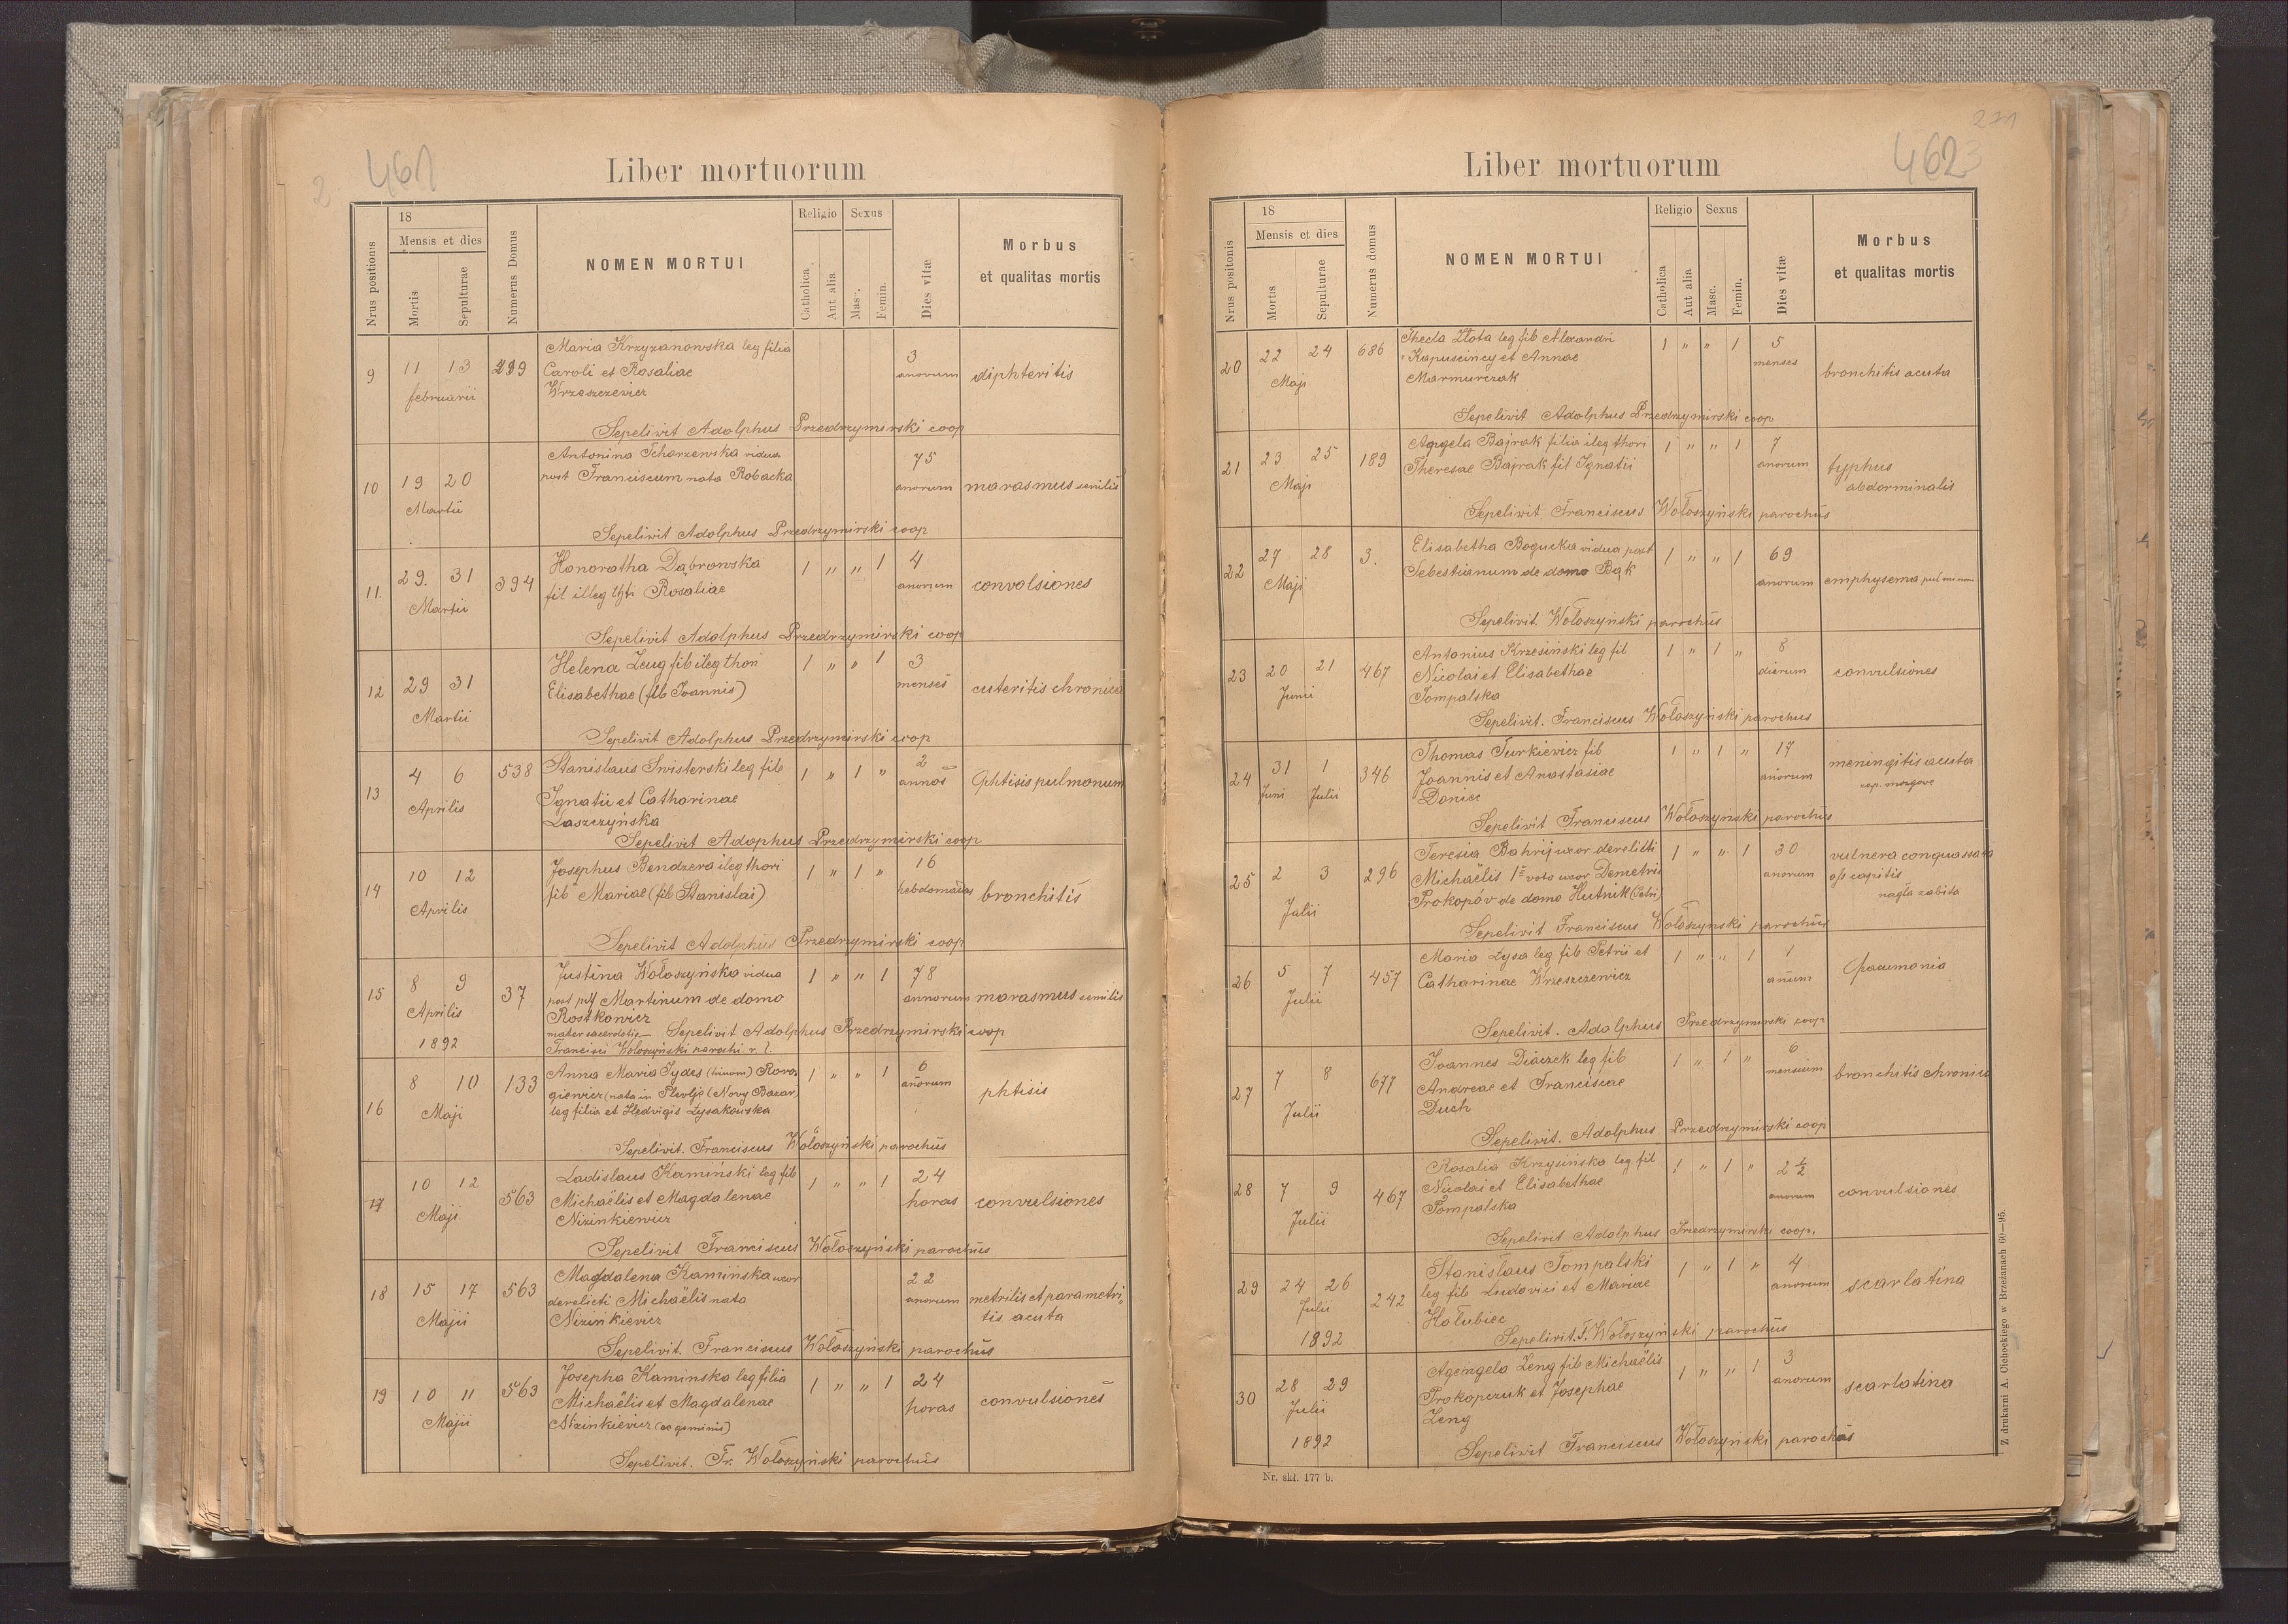 2.
461
Liber mortuorum
Nrus positionis
18
Mensis et dies
Mortis
Sepulturae
Numerus Domus
NOMEN MORTUI
Religio
Catholica
Aut alia
Sexus
Masc.
Femin.
Dies vitæ
Morbus
et qualitas mortis
9
11 13
februarii
299
Maria Krzyzanowska leg filia
Caroli et Rosaliae
Wrzeszczewicz
3
anorum
diphteritis
Sepelivit Adolphus Przedrzymirski coop
10
19 20
Martii
Antonina Scharzewska vidua
post Franciscum nata Robacka
75
anorum
marasmus senilis
Sepelivit Adolphus Przedrzymirski coop
11.
29. 31
Martii
394
Honoratha Dąbrowska
fil illeg thti Rosaliae
1 " " 1
4
anorum
convolsiones
Sepelivit Adolphus Przedrzymirski coop
12
29 31
Martii
Helena Zeug fib ileg thori
Elisabethae (fib Joannis)
1 " " 1
3
menses
enteritis chronica
Sepelivit Adolphus Przedrzymirski coop
13
4 6
Aprilis
538
Stanislaus Swisterski leg fib
Ignatii et Catharinae
Laszczyńska
1 " 1 "
2
annos
Phtisis pulmonum
Sepelivit Adophus Przedrzymirski coop
14
10 12
Aprilis
Josephus Bendzera ileg thori
fib Mariae (fib Stanislai)
1 " 1 "
16
hebdomadas
bronchitis
Sepelivit Adolphus Przedrzymirski coop
15
8 9
Aprilis
1892
37
Justina Wołoszyńska vidua
post Martinum de domo
Rostkowicz
mater sacerdotis
1 " " 1
78
annorum
marasmus senilis
Sepelivit Adolphus Przedrzymirski coop
Francisci Wołoszyński parochi r. l.
16
8 10
Maji
133
Anna Maria Tydes (binom) Roro
giewicz (nata in Plevlje (Novy Bazar)
leg filia et Hedvigis Lysakowska
1 " " 1
6
anorum
phtisis
Sepelivit. Franciscus Wołoszyński parochus
17
10 12
Maji
563
Ladislaus Kamiński leg fib
Michaëlis et Magdalenae
Nizinkiewicz
1 " " 1
24
horas
convulsiones
Sepelivit Franciscus Wołoszyński parochus
18
15 17
Majii
563
Magdalena Kamińska uxor
derelicti Michaëlis nata
Nizinkievicz
22
anorum
metrilis et parametri„
tis acuta
Sepelivit. Franciscus Wołoszyński parochus
19
10 11
Majii
563
Josepha Kaminska leg filia
Michaëlis et Magdalenae
Nizinkievicz (ex geminis)
1 " " 1
24
horas
convulsiones
Sepelivit. Fr. Wołoszyński parochus
271
462
Liber mortuorum
Nrus positonis
18
Mensis et dies
Mortis
Sepulturae
Numerus domus
NOMEN MORTUI
Religio
Catholica
Aut alia
Sexus
Masc.
Femin.
Dies vitæ
Morbus
et qualitas mortis
20
22 24
Maji
686
Thecla Złota leg fib Alexandri
Kapuscincy et Annae
Marmurczak
1 " " 1
5
menses
bronchitis acuta
Sepelivit Adolphus Przedrzymirski coop
21
23 25
Maji
189
Angela Bajrak filia ileg thori
Theresae Bajrak fil Ignatii
1 " " 1
7
anorum
typhus
abdorminalis
Sepelivit Franciscus Wołoszyński parochus
22
27 28
Maji
3.
Elisabetha Bogucka vidua post
Sebestianum de domo Bąk
1 " " 1
69
anorum
emphysema pulmonum
Sepelivit. Wołoszyński parochus
23
20 21
Junii
467
Antonius Krzesiński leg fil
Nicolai et Elisabethae
Tompalska
1 " 1 "
8
dierum
convulsiones
Sepelivit. Franciscus Wołoszyński parochus
24
31 1
Juni Julii
346
Thomas Turkievicz fib
Joannis et Anastasiae
Daniec
1 " 1 "
17
anorum
meningitis acuta
zap. mozgowe
Sepelivit Franciscus Wołoszyński parochus
25
2 3
Julii
296
Teresia Bahrij uxor derelicti
Michaëlis 1º voto uxor Demetrii
Prokopóv de domo Hutnik (Petri)
1 " " 1
30
anorum
vulnera conquassata
oss capitis
nagła zabita
Sepelivit Franciscus Wołoszyński parochus
26
5 7
Julii
457
Maria Lysa leg fib Petrii et
Catharinae Wrzeszczewicz
1 " " 1
1
anum
Pneumonia
Sepelivit. Adolphus Przedrzymirski coop
27
7 8
Julii
677
Joannes Diaczek leg fib
Andreae et Franciscae
Duch
1 " 1 "
6
mensium
bronchitis chronica
Sepelivit. Adolphus Przedrzymirski coop
28
7 9
Julii
467
Rosalia Krzysińska leg fil
Nicolai et Elisabethae
Tompalska
1 " 1 "
2 ½
anorum
convulsiones
Sepelivit Adolphus Przedrzymirski coop.
29
24 26
Julii
1892
242
Stanisłaus Tompalski
leg fib Ludovici et Mariae
Hołubiec
1 " 1 "
4
anorum
scarlatina
Sepelivit. F. Wołoszyński parochus
30
28 29
Julii
1892
Agengela Zeng fib Michaëlis
Prokopczuk et Josephae
Zeng
1 " " 1
3
anorum
scarlatina
Sepelivit Franciscus Wołoszyński parochus
Nr. skł. 177 b.
Z drukarni A. Ciebockiego w Brzeżanach 60—95.